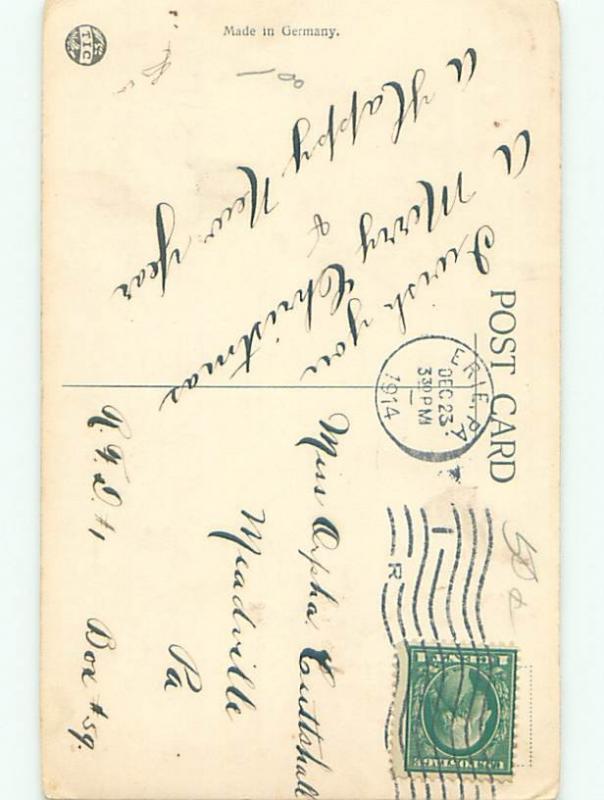 Made in Germany.
TIC
POST CARD
I wish you
A Merry Christmas
&
A Happy New Year
ERIE, PA.
DEC 23
3 30 PM
1914
R
Miss Orpha Cuttshall
Meadville
Pa
R. F. D. #1 Box #59.
U.S. POSTAGE
1 CENT 1